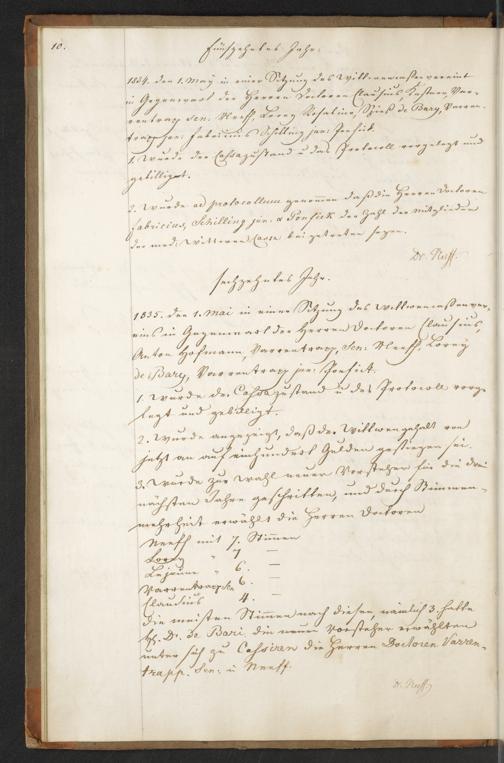 10.
Fünfzehntes Jahr.
1834. den 1. May in einer Sitzung des Wittwencassenvereins
in Gegenwart der Herren Doctoren Clausius, Kestner, Var-
rentrapp sen: Neeff Lorey Spieß de Bary, Varren-
trapp jun: Fabricius Schilling jun: Ponfick
1. Wurde der Cassazustand u das Protocoll vorgelegt und
gebilligt.
2. Wurde ad protocollum genommen daß die Herren Doctoren
Fabricius, Schilling jun: u Ponfick der Zahl der Mitglieder
der med: Wittwen Casse beigetreten seyen.
Dr. Neeff.
Sechzehntes Jahr.
1835. den 1. Mai in einer Sitzung des Wittwencassenver-
eins in Gegenwart der Herren Doctoren Clausius,
Anton Hofmann, Varrentrapp, Sen: Neeff. Lorey
de Bary, Varrentrapp jun: Ponfick.
1. Wurde der Cassazustand u das Protocoll vorge-
legt und gebilligt.
2. Wurde angezeigt, daß der Wittwengehalt von
jetzt an auf einhundert Gulden gestiegen sei.
3. Wurde zur Wahl neuer Vorsteher für die drei
nächsten Jahre geschritten, und durch Stimmen-
mehrheit erwählt die Herren Doctoren
Neeff mit 7. Stimmen
Lorey " 7 —
Lejeune " 6. —
Varrentrapp Sen 6. —
Clausius 4. —
Die meisten Stimmen nach diesen, nämlich 3. hatte
H. Dr. de Bari. Die neuen Vorsteher erwählten
unter sich zu Cassiren die Herren Doctoren Varren-
trapp. Sen: u Neeff.
Dr. Neeff